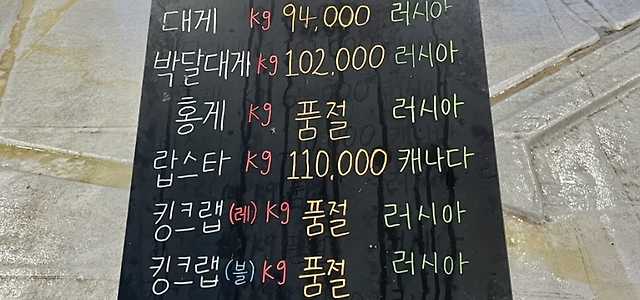 대게 kg 94,000 러시아
박달대게 kg 102,000 러시아
홍게 kg 품절 러시아
랍스타 kg 110,000 캐나다
킹크랩 (레) kg 품절 러시아
킹크랩 (블) kg 품절 러시아